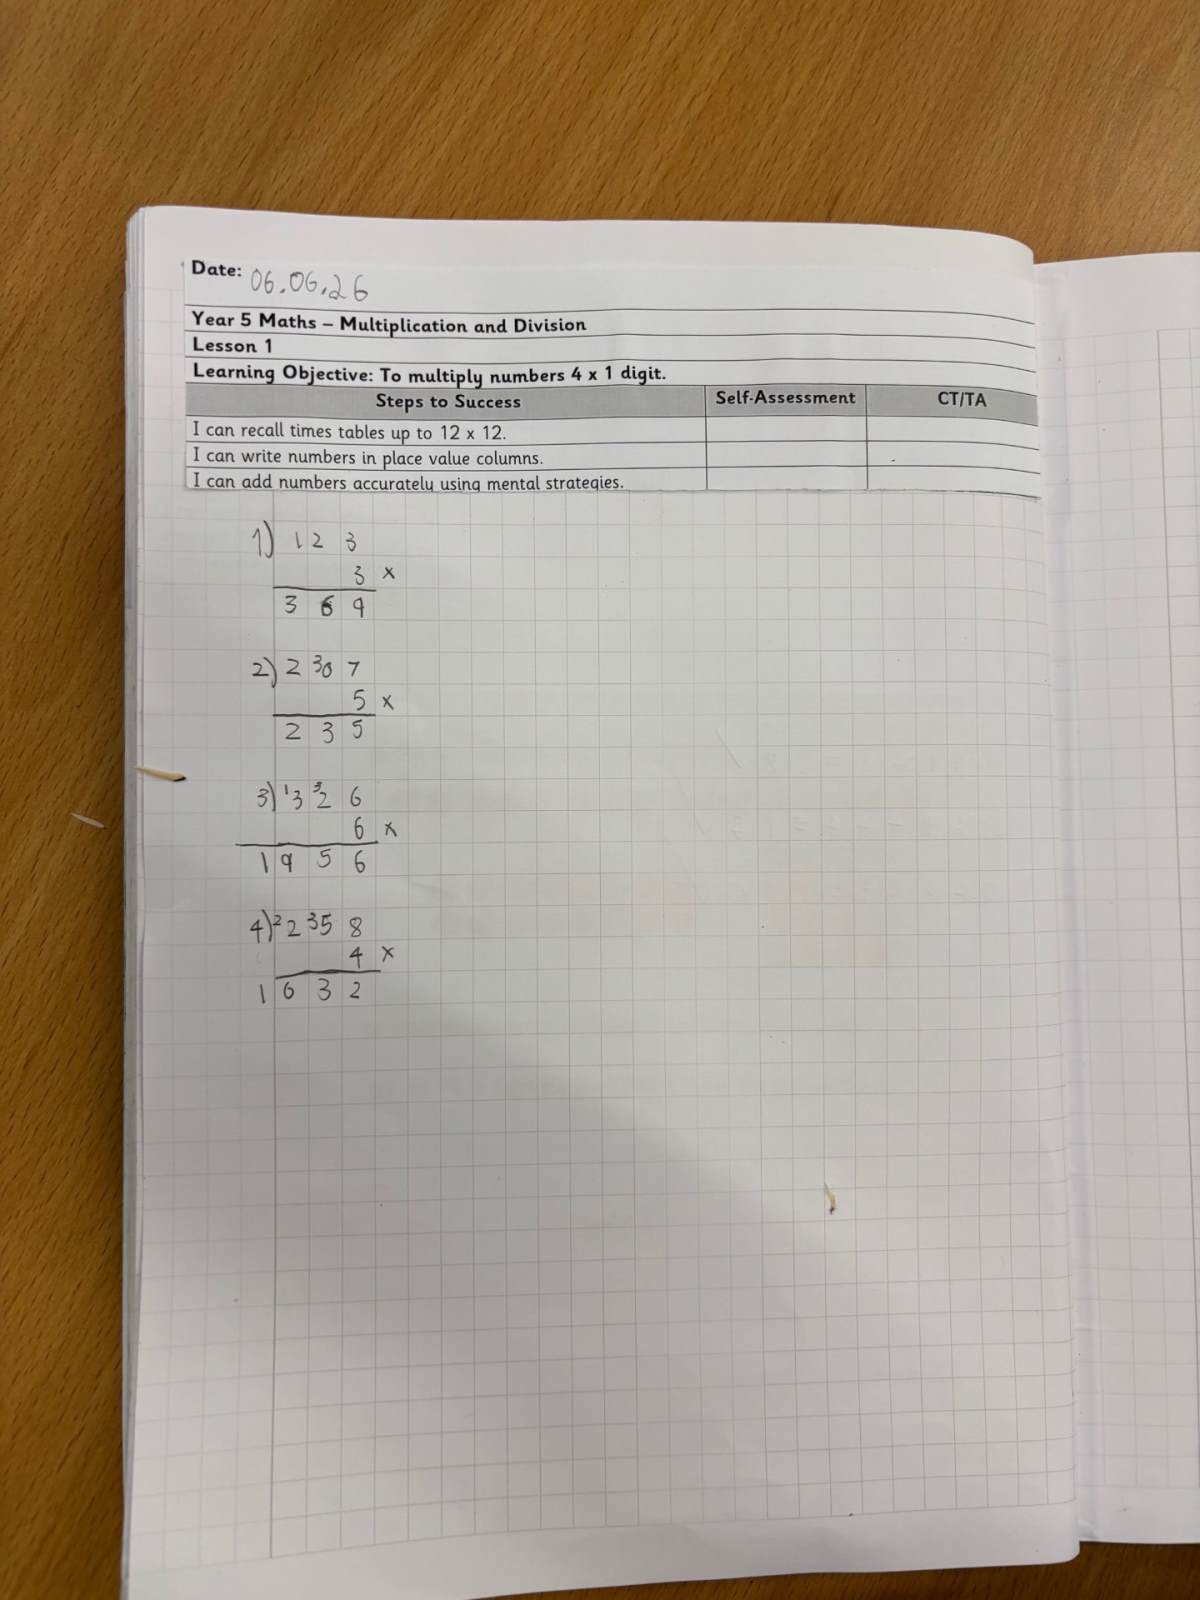 Date: 06.06.26
Year 5 Maths – Multiplication and Division
Lesson 1
Learning Objective: To multiply numbers 4 x 1 digit.
Steps to Success Self-Assessment CT/TA
I can recall times tables up to 12 x 12.
I can write numbers in place value columns.
I can add numbers accurately using mental strategies.
1) 1 2 3
3 x
3 6 9
2) 2 3 0 7
5 x
2 3 5
3) 1 3 3 2 6
6 x
1 9 5 6
4) 2 2 3 5 8
4 x
1 6 3 2